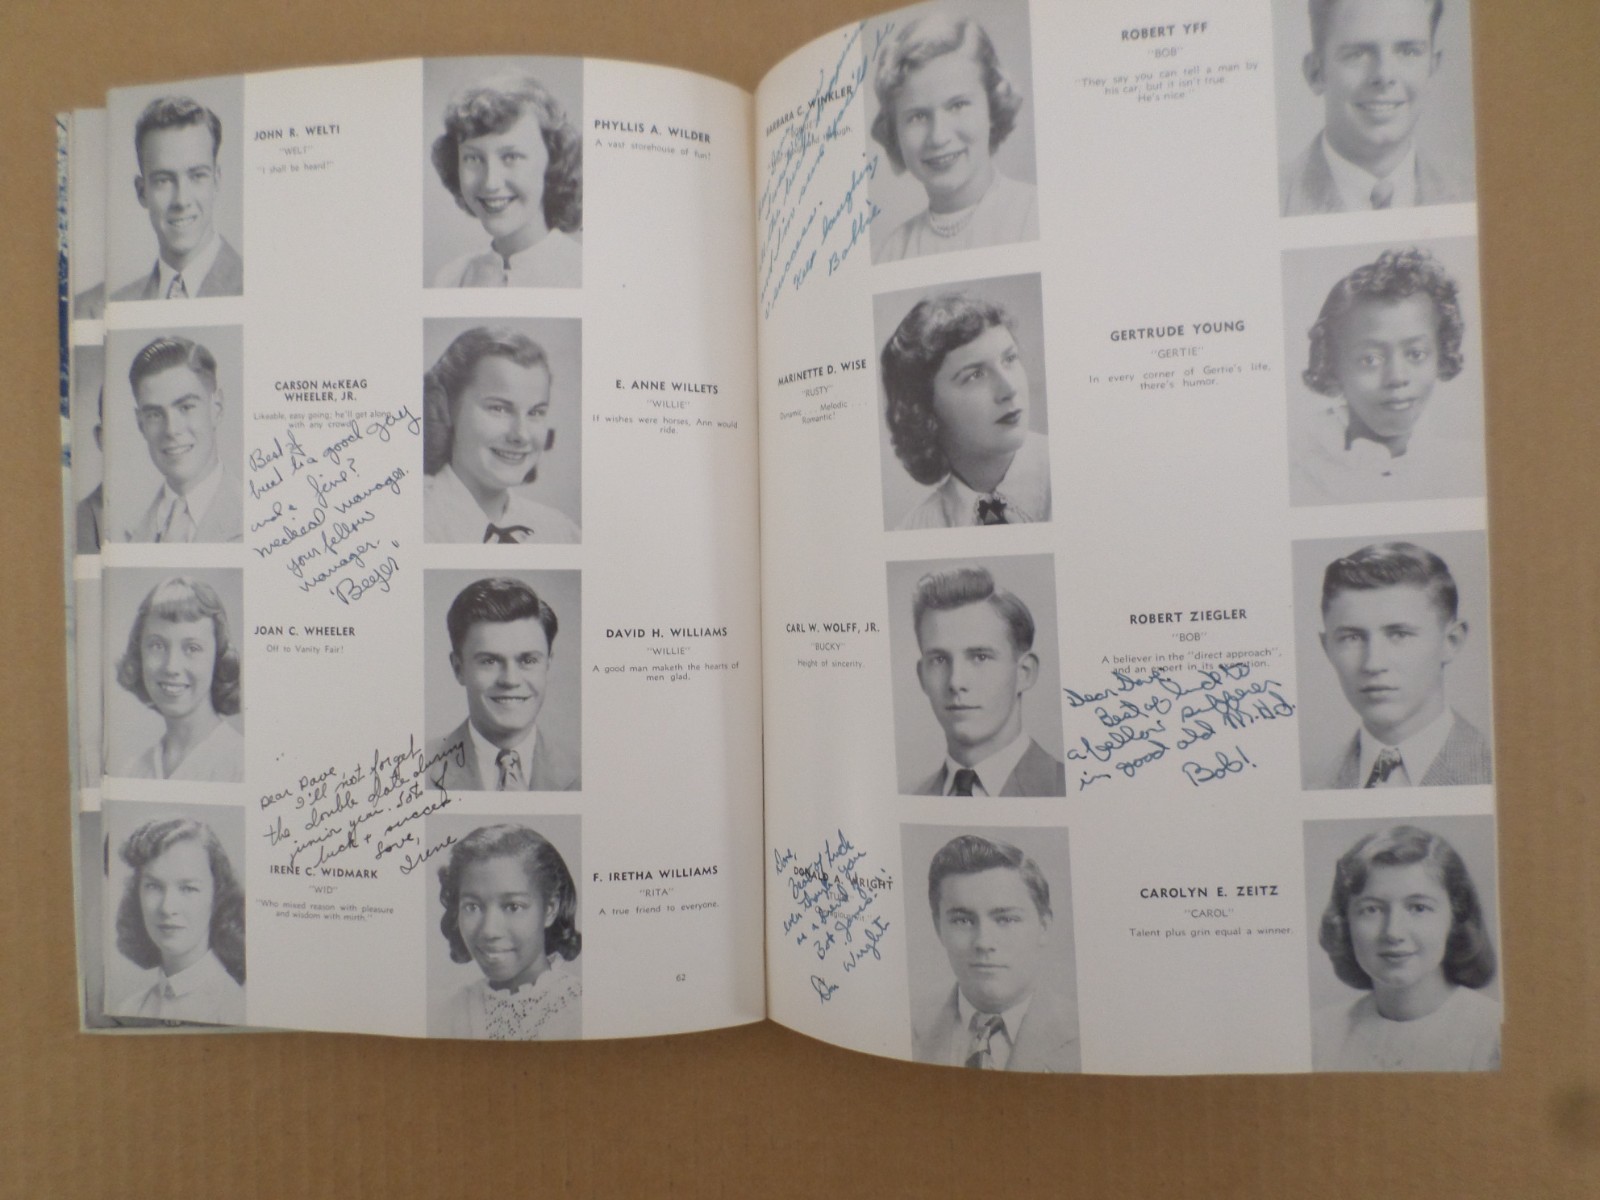 JOHN R. WELTI
"WELT"
"I shall be heard!"
PHYLLIS A. WILDER
A vast storehouse of fun!
CARSON McKEAG
WHEELER, JR.
Likeable, easy going; he'll get along
with any crowd.
Best of
luck to a good guy
and a fine?
medical manager.
your fellow
manager.
"Beefer"
E. ANNE WILLETS
"WILLIE"
If wishes were horses, Ann would
ride.
JOAN C. WHEELER
Off to Vanity Fair!
DAVID H. WILLIAMS
"WILLIE"
A good man maketh the hearts of
men glad.
Dear Dave,
I'll not forget
the double date during
junior year. Lots of
luck + success.
Love,
Irene
IRENE C. WIDMARK
"WID"
"Who mixed reason with pleasure
and wisdom with mirth."
F. IRETHA WILLIAMS
"RITA"
A true friend to everyone.
62
BARBARA C. WINKLER
success.
Keep laughing
Bobbie
ROBERT YFF
"BOB"
"They say you can tell a man by
his car, but it isn't true.
He's nice."
MARINETTE D. WISE
"RUSTY"
Dynamic . . . Melodic . . .
Romantic!
GERTRUDE YOUNG
"GERTIE"
In every corner of Gertie's life,
there's humor.
CARL W. WOLFF, JR.
"BUCKY"
Height of sincerity.
ROBERT ZIEGLER
"BOB"
A believer in the "direct approach",
and an expert in its execution.
Dear Dave,
Best of luck to
a fellow sufferer
in good old M.H.J.
Bob!
DONALD A. WRIGHT
luck
even though you
Don Wright
CAROLYN E. ZEITZ
"CAROL"
Talent plus grin equal a winner.